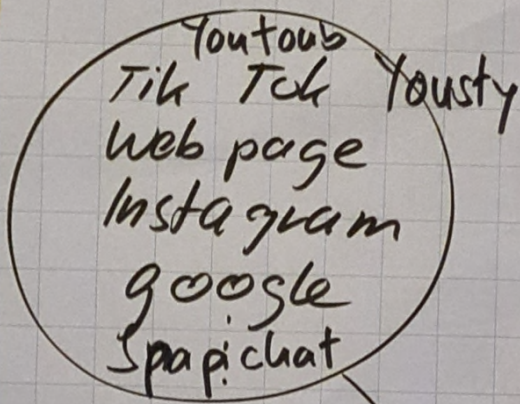 Youtoub
Tik Tok Yousty
Web page
Instagram
google
Spapichat